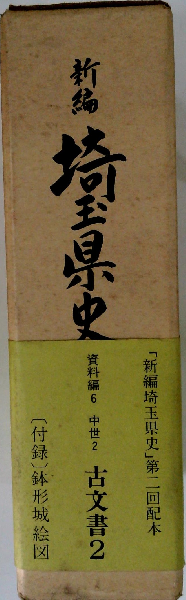 新編
埼玉県史
「新編埼玉県史」第二回配本
資料編6 中世2 古文書2
〔付録〕鉢形城絵図